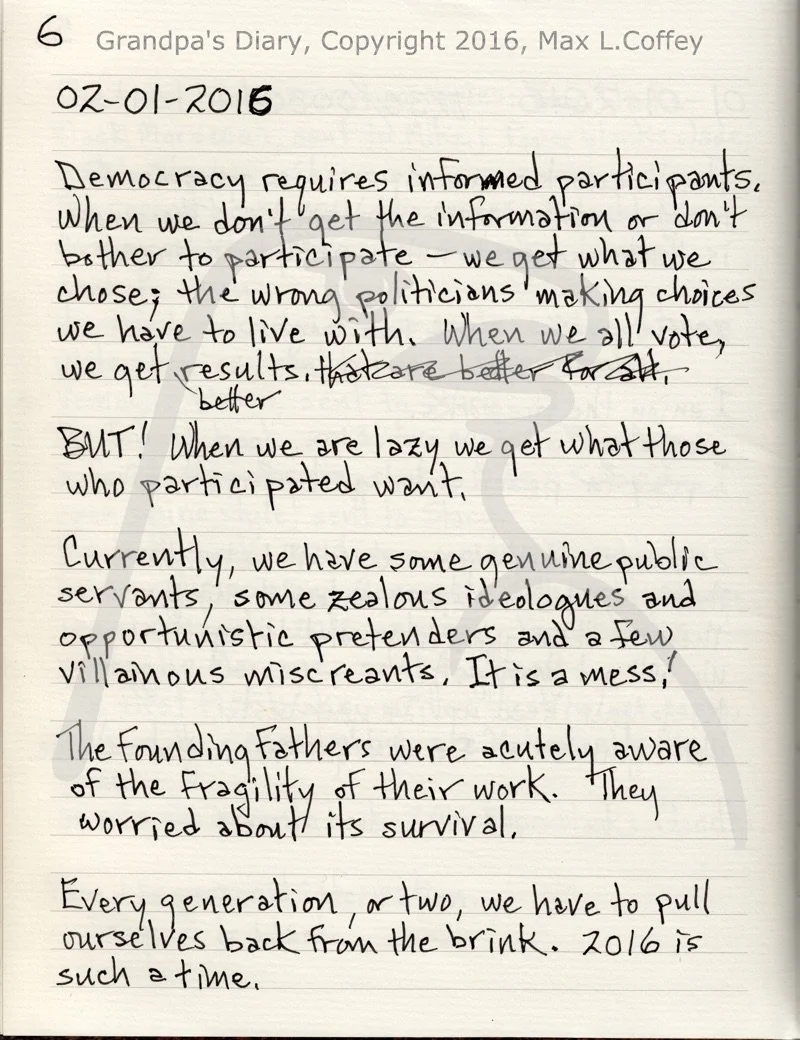 6 Grandpa's Diary, Copyright 2016, Max L.Coffey
02-01-2016
Democracy requires informed participants.
When we don't get the information or don't
bother to participate – we get what we
chose; the wrong politicians making choices
we have to live with. When we all vote,
we get results. that are better for all.
better
BUT! When we are lazy we get what those
who participated want.
Currently, we have some genuine public
servants, some zealous ideologues and
opportunistic pretenders and a few
villainous miscreants. It is a mess!
The Founding Fathers were acutely aware
of the fragility of their work. They
worried about its survival.
Every generation, or two, we have to pull
ourselves back from the brink. 2016 is
such a time.